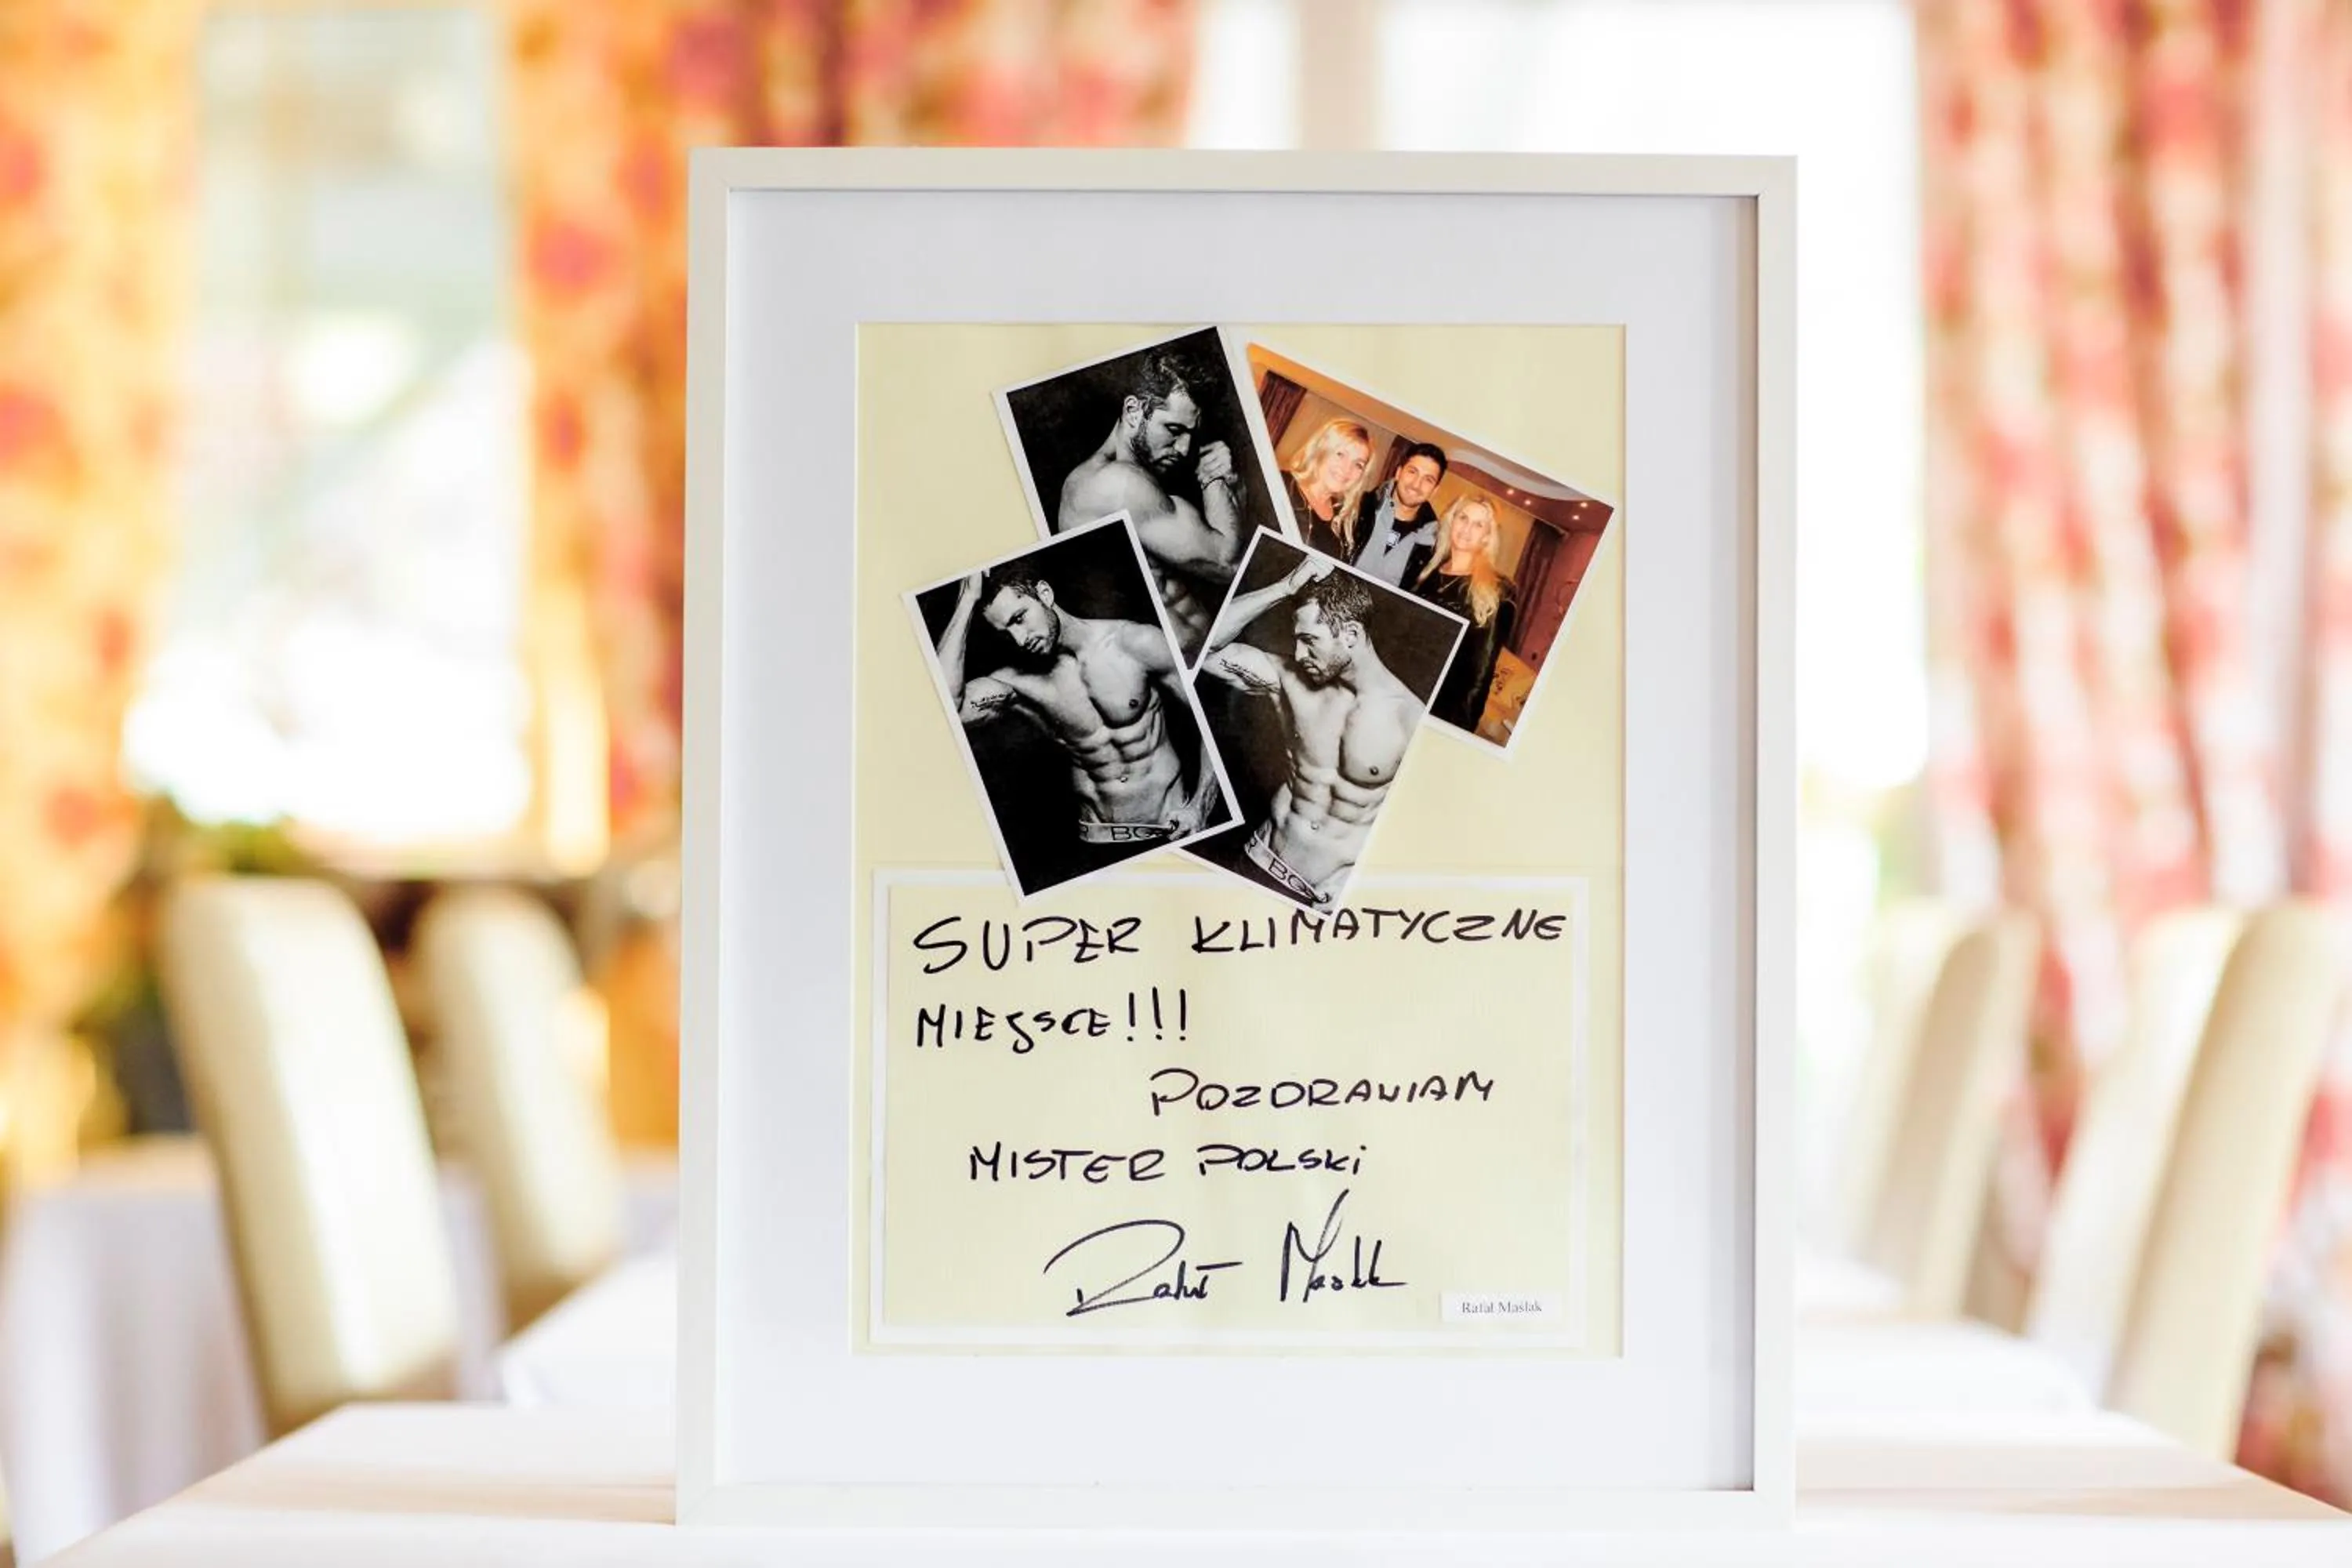 R BC
R BG
SUPER KLIMATYCZNE
MIEJSCE!!!
POZDRAWIAM
MISTER POLSKi
Rafał Maślak
Rafał Maślak